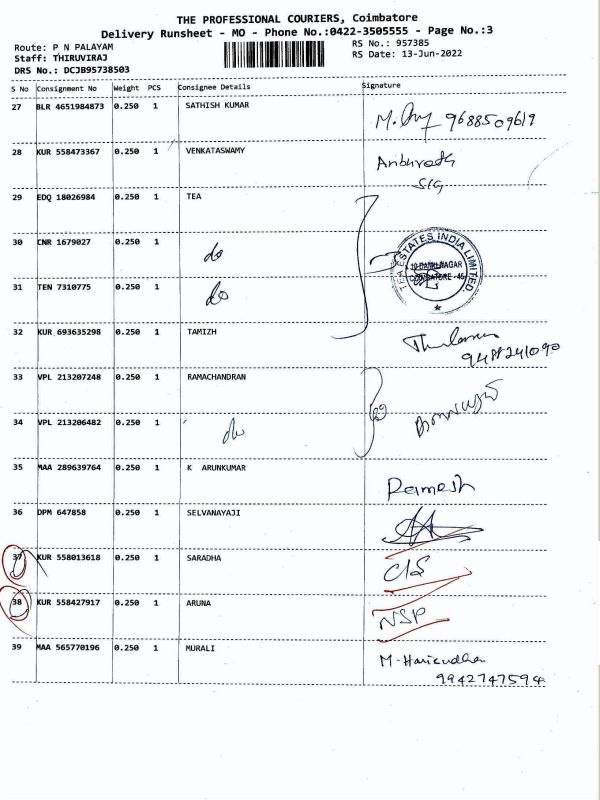 THE PROFESSIONAL COURIERS, Coimbatore
Delivery Runsheet - MO - Phone No.:0422-3505555 - Page No.:3
Route: P N PALAYAM RS No.: 957385
Staff: THIRUVIRAJ RS Date: 13-Jun-2022
DRS No.: DCJB95738503
S No Consignment No Weight PCS Consignee Details Signature
27 BLR 4651984873 0.250 1 SATHISH KUMAR
9688509619
28 KUR 558473367 0.250 1 VENKATASWAMY
29 EDQ 18026984 0.250 1 TEA
30 CNR 1679027 0.250 1 do
TEA ESTATES INDIA LIMITED.
31 TEN 7310775 0.250 1 do
32 KUR 693635298 0.250 1 TAMIZH
33 VPL 213207248 0.250 1 RAMACHANDRAN
34 VPL 213206482 0.250 1 do
35 MAA 289639764 0.250 1 K ARUNKUMAR
Ramesh
36 DPM 647858 0.250 1 SELVANAYAJI
37 KUR 558013618 0.250 1 SARADHA
C/S
38 KUR 558427917 0.250 1 ARUNA
NSP
39 MAA 565770196 0.250 1 MURALI
9942747594